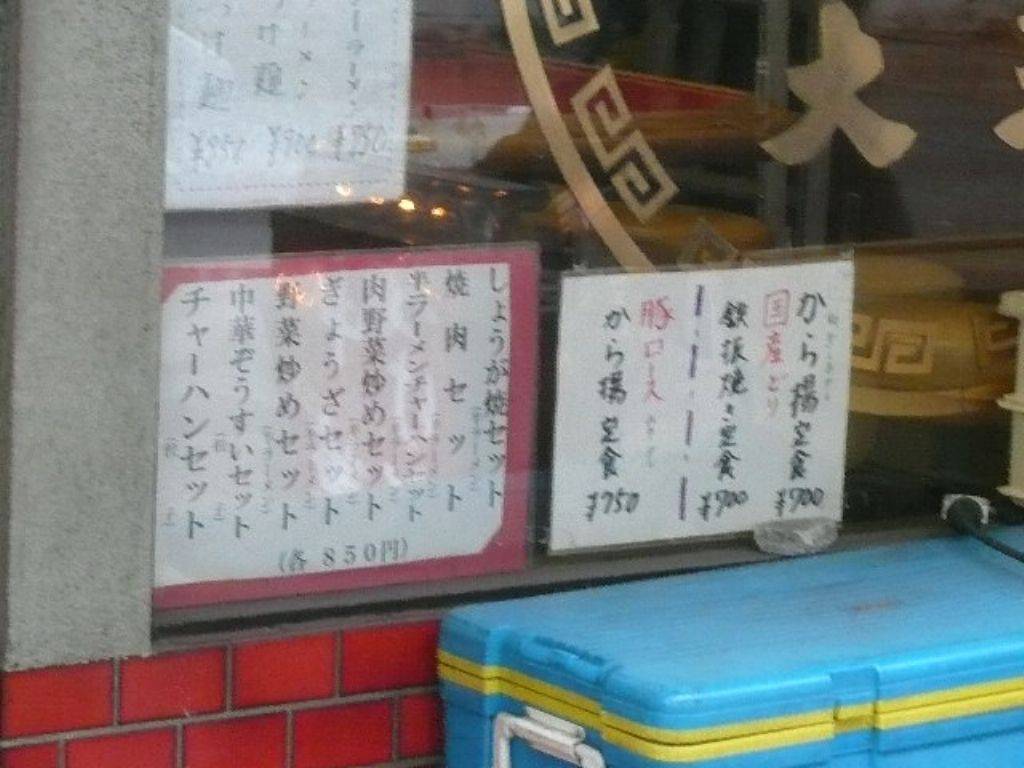 ーラーメン ¥750
ーメン ¥900
け麺
け麺 ¥950
しょうが焼セット
焼肉セット
半ラーメンチャーハンセット
肉野菜炒めセット
ぎょうざセット
野菜炒めセット
中華ぞうすいセット
チャーハンセット
(各850円)
から揚定食 ¥700
国産どり
鉄板焼き定食 ¥900
豚ロース
から揚定食 ¥750
大